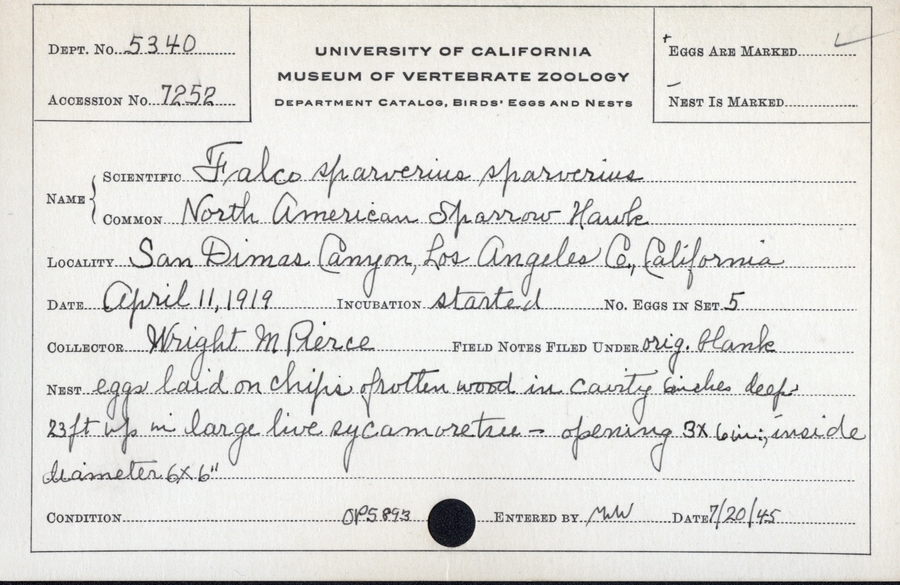 DEPT. No. 5340
ACCESSION No. 7252
UNIVERSITY OF CALIFORNIA
MUSEUM OF VERTEBRATE ZOOLOGY
DEPARTMENT CATALOG, BIRDS' EGGS AND NESTS
+ EGGS ARE MARKED ✓
– NEST IS MARKED
NAME { SCIENTIFIC Falco sparverius sparverius
COMMON North American Sparrow Hawk
LOCALITY San Dimas Canyon, Los Angeles Co., California
DATE April 11, 1919 INCUBATION started No. EGGS IN SET 5
COLLECTOR Wright M Pierce FIELD NOTES FILED UNDER orig. blank
NEST eggs laid on chips of rotten wood in cavity 6 inches deep
23 ft up in large live sycamore tree – opening 3x6 in.; inside
diameter 6x6"
CONDITION OP5893 ENTERED BY DATE 7/20/45